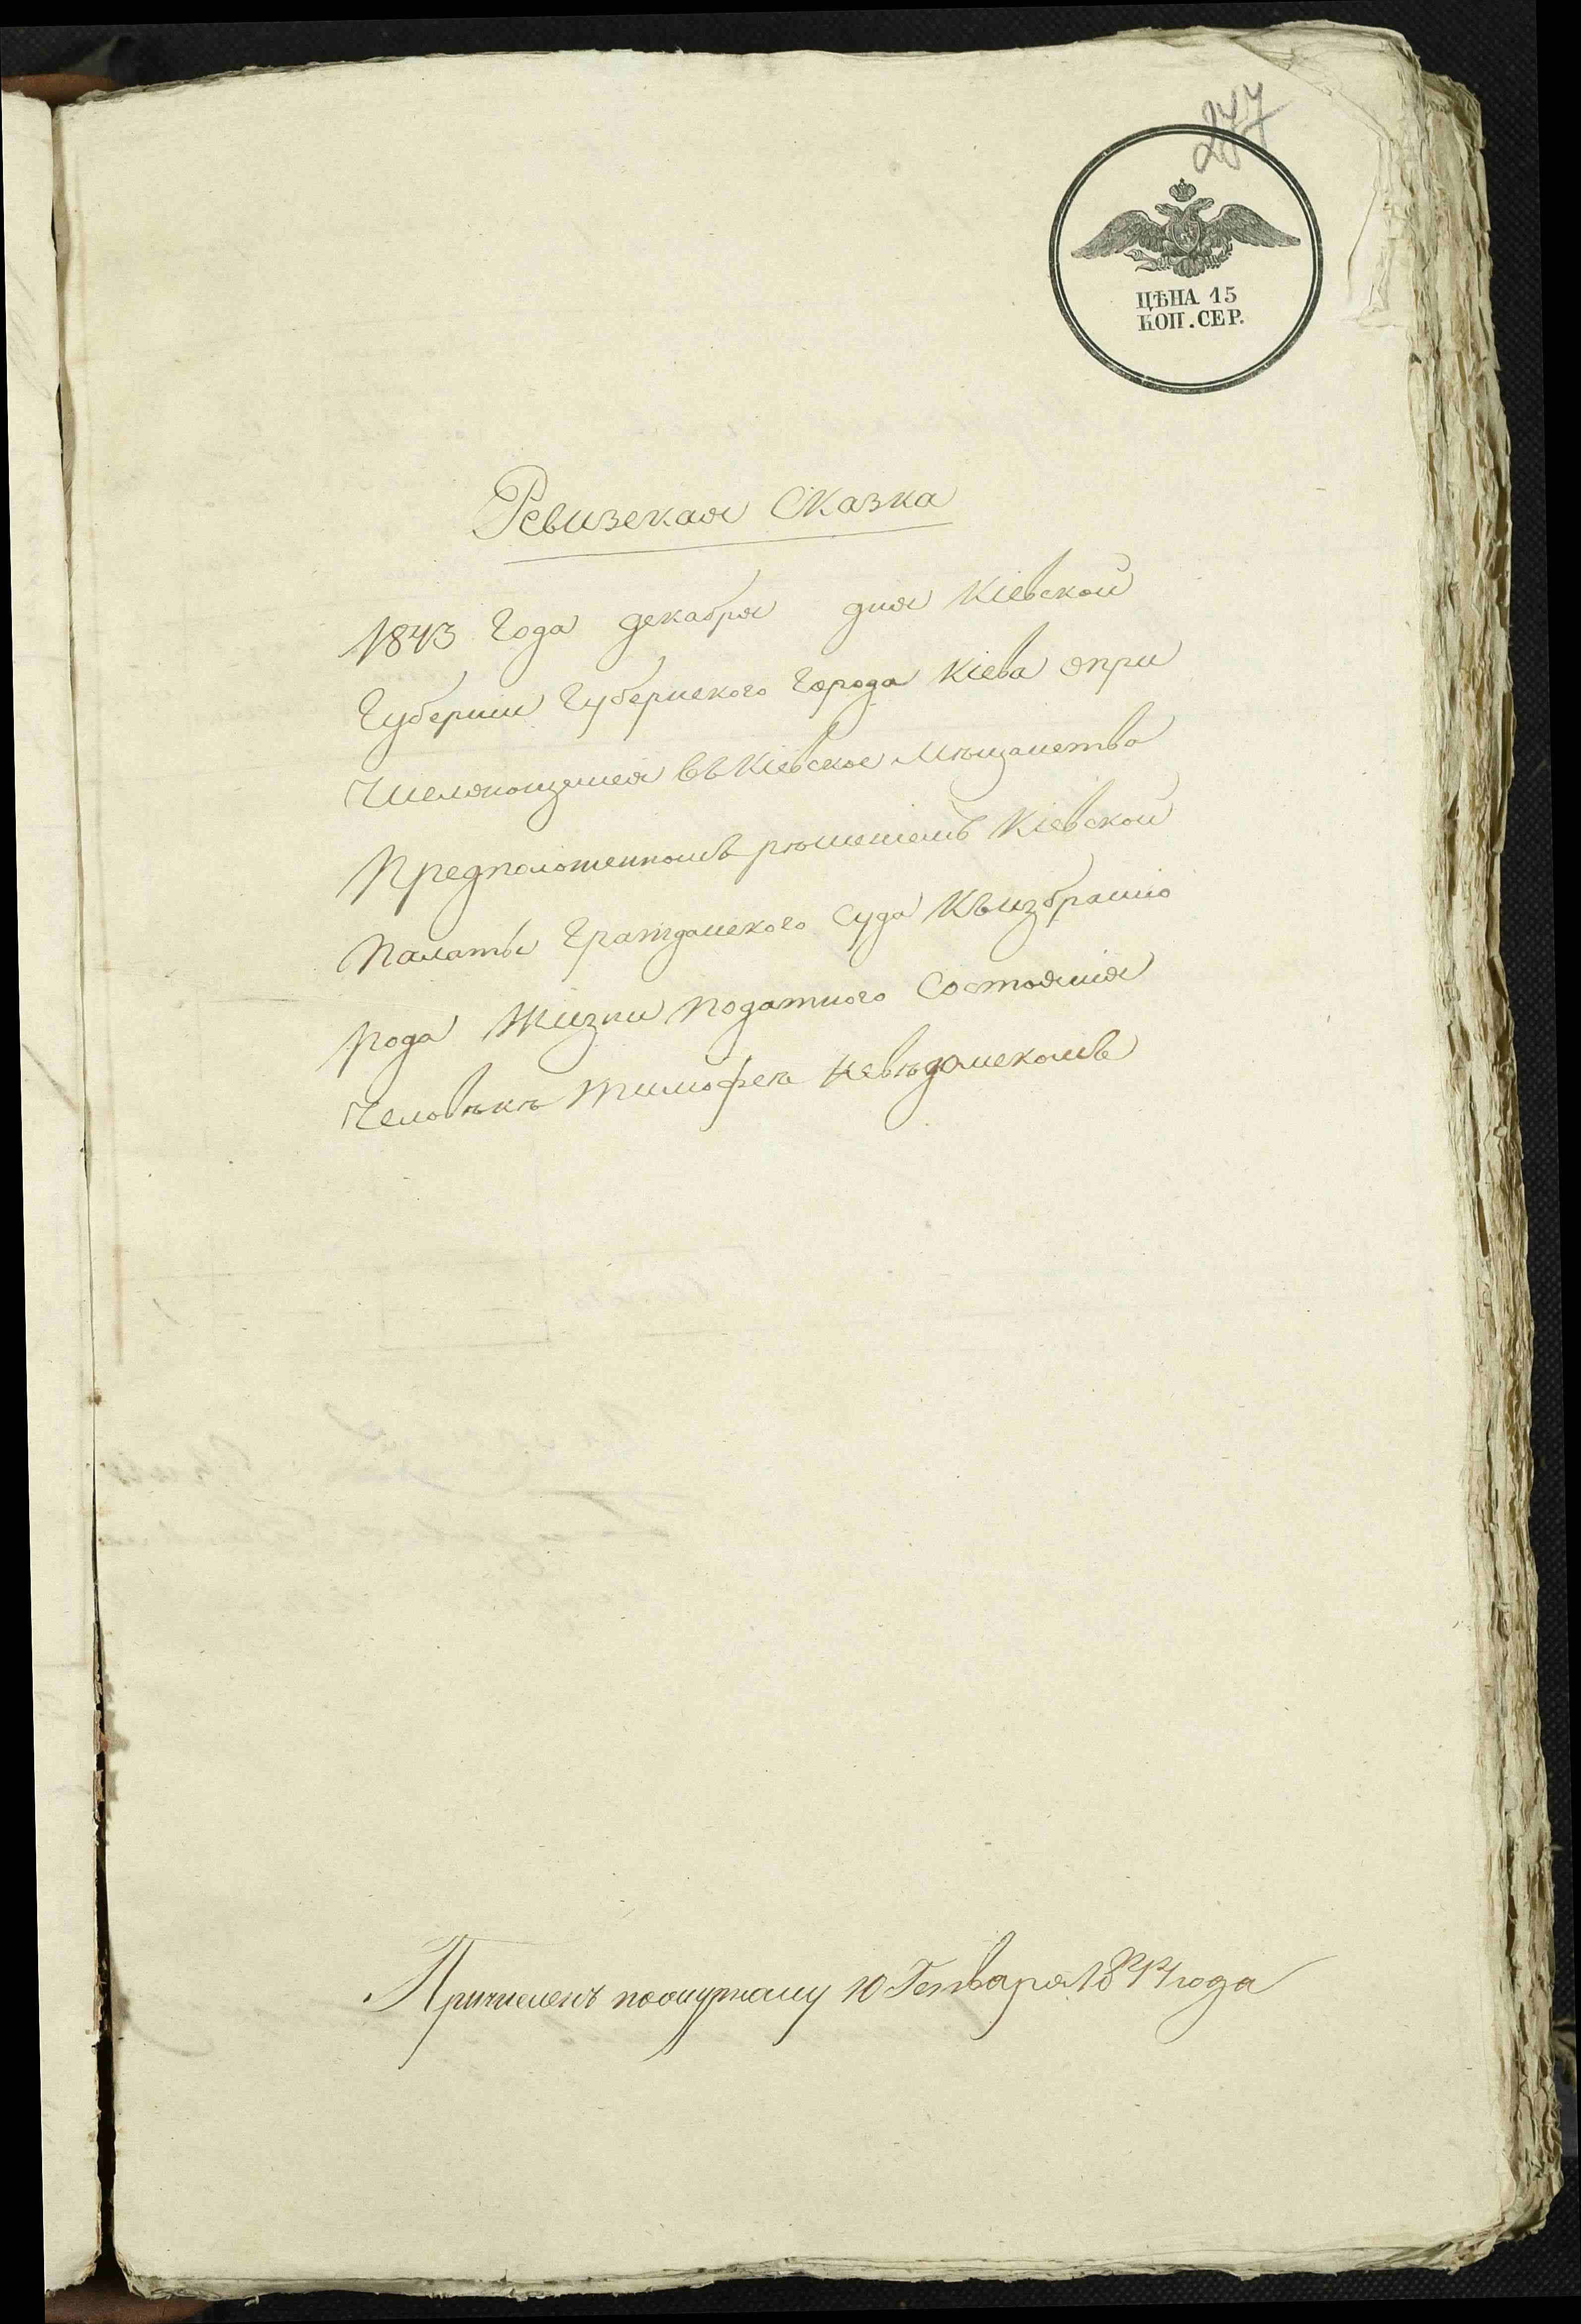 277
ЦѢНА 15
КОП. СЕР.
Ревизская Сказка
1843 Года декабря дня Кіевской
Губерніи Губернского Города Кіева опри
числяющемся въ Кіевское мѣщанство
Предположенномъ рѣшеніемъ Кіевской
Палаты Гражданского Суда Къ избранію
рода Жизни Податного Состоянія
Человѣкѣ Тимофеѣ Невѣдомскомъ
Причисленъ по журналу 10 Генваря 1844 года